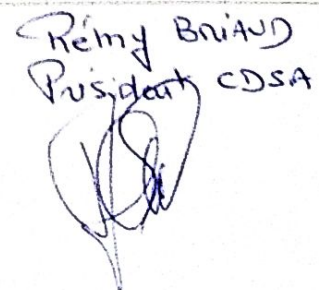 Rémy BRIAND
Président CDSA